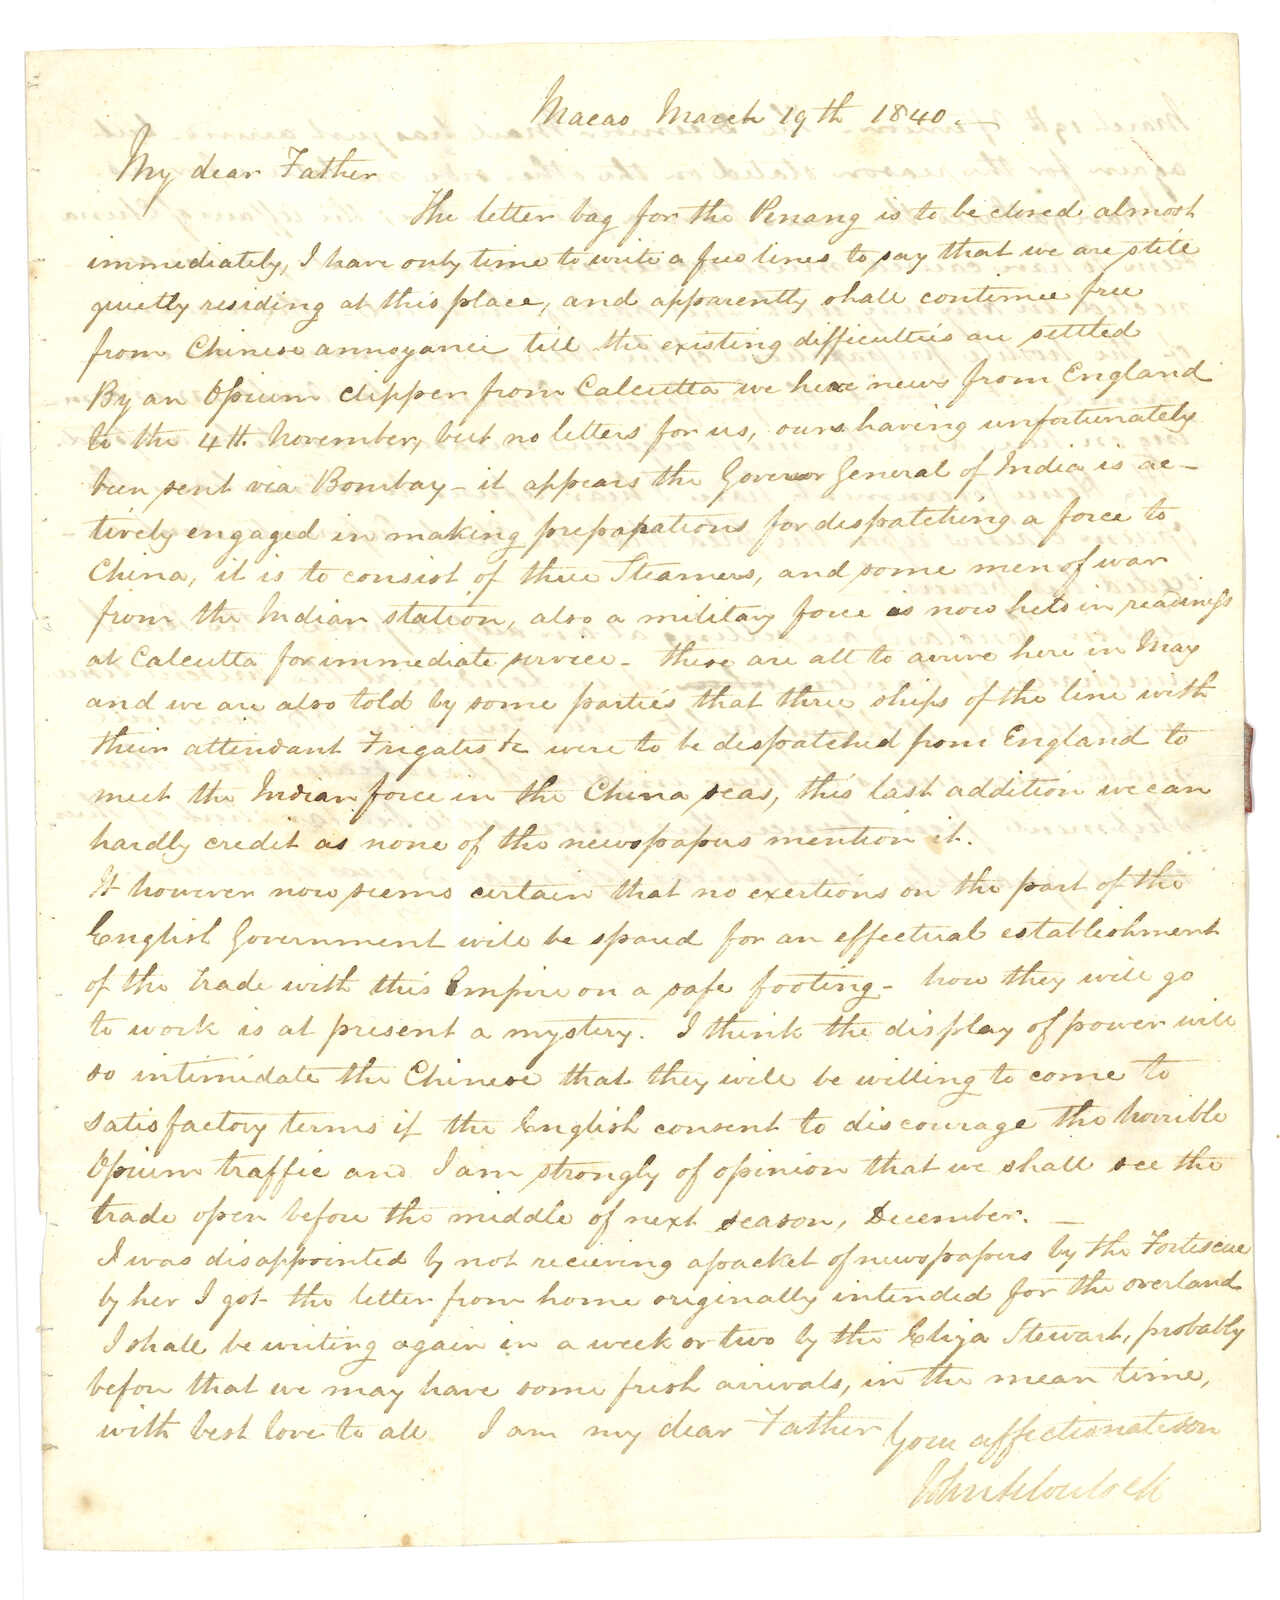 Macao March 19th 1840. —
My dear Father
The letter bag for the Penang is to be closed almost
immediately, I have only time to write a few lines to say that we are still
quietly residing at this place, and apparently shall continue free
from Chinese annoyance till the existing difficulties are settled
By an Opium clipper from Calcutta we have news from England
to the 4th November, but no letters for us, ours having unfortunately
been sent via Bombay - it appears the Goveror General of India is ac-
tively engaged in making preparations for dispatching a force to
China, it is to consist of three Steamers, and some men of war
from the Indian station, also a military force is now held in readiness
at Calcutta for immediate service - these are all to arrive here in May
and we are also told by some parties that three ships of the line with
their attendant Frigates &c were to be despatched from England to
meet the Indian force in the China seas, this last addition we can
hardly credit as none of the newspapers mention it.
It however now seems certain that no exertions on the part of the
English Government will be spared for an effectual establishment
of the trade with this Empire on a safe footing - how they will go
to work is at present a mystery. I think the display of power will
so intimidate the Chinese that they will be willing to come to
satisfactory terms if the English consent to discourage the horrible
Opium traffic and I am strongly of opinion that we shall see the
trade open before the middle of next season, December. —
I was disappointed by not recieving a packet of newspapers by the Fortescue
by her I got the letter from home originally intended for the overland
I shall be writing again in a week or two by the Eliza Stewart, probably
before that we may have some fresh arrivals, in the mean time,
with best love to all I am my dear Father your affectionate son
John